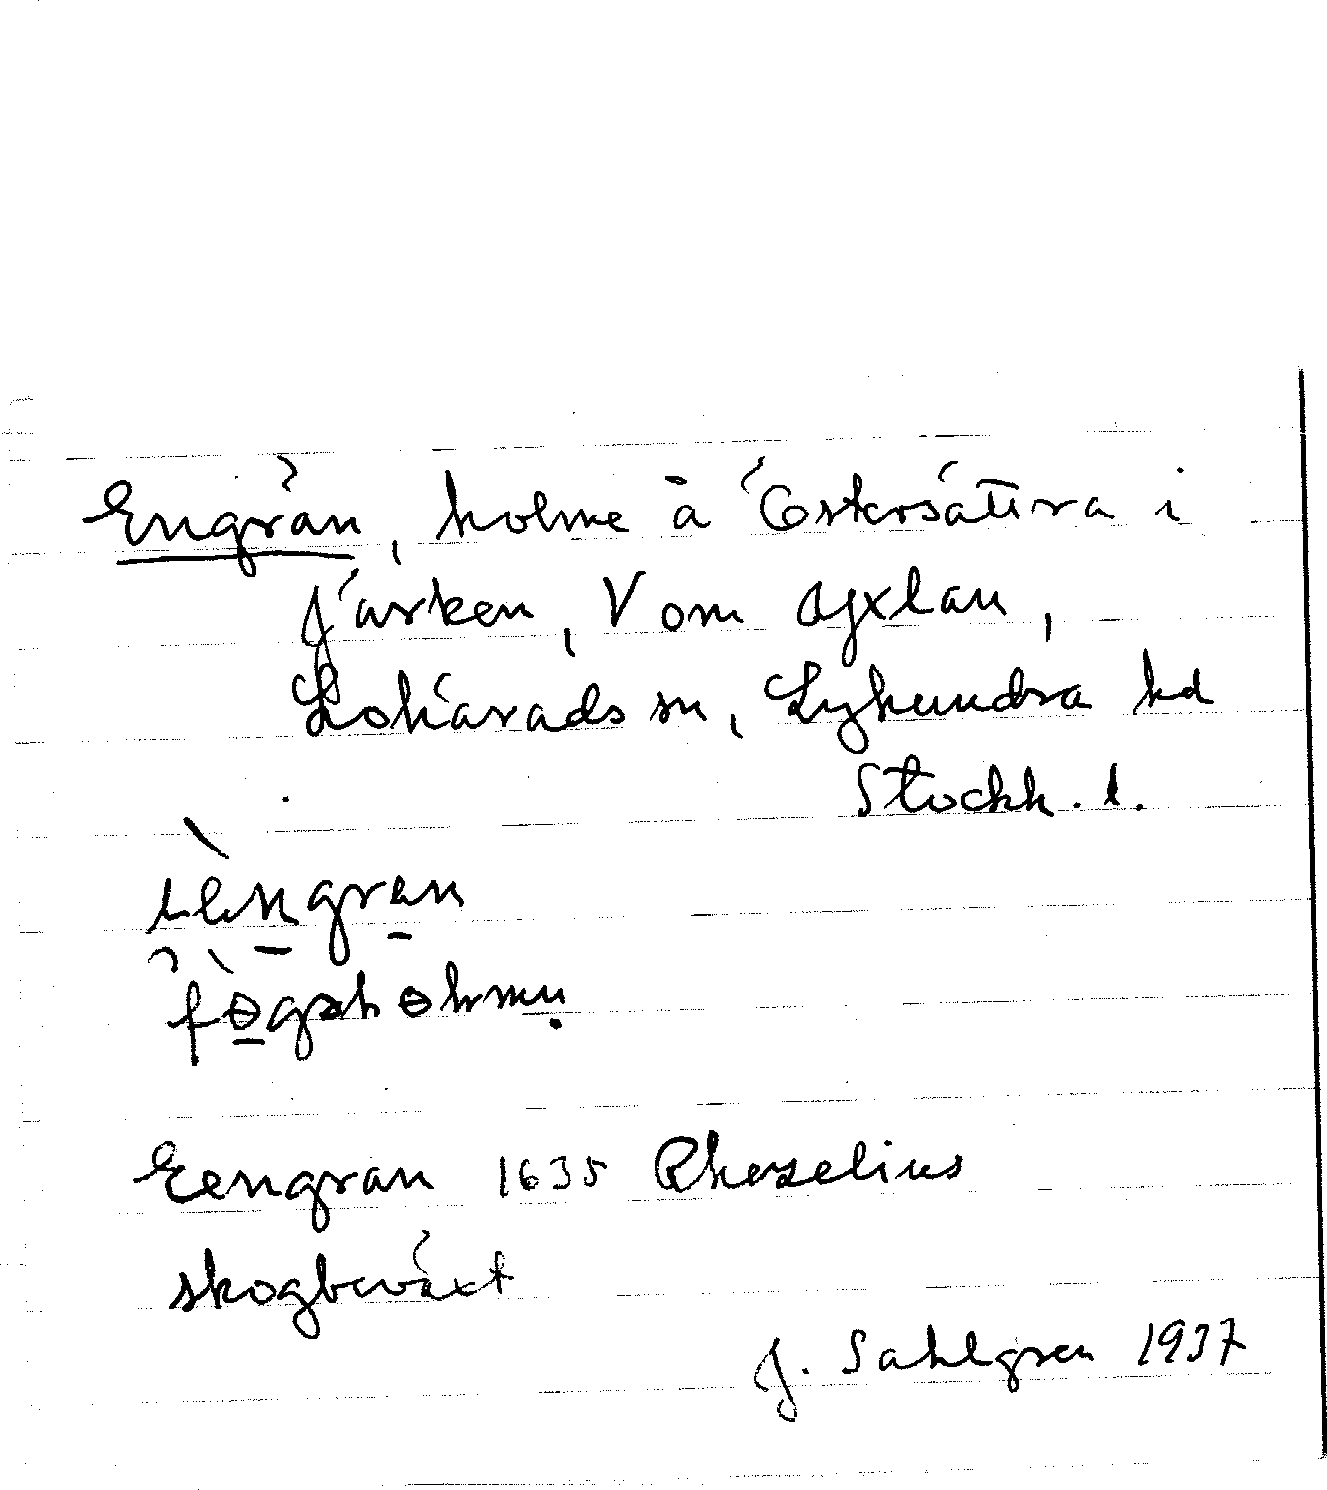 Engrän, holme å Östersättra i
Järken, V om Ajxlan,
Lohärads sn, Lyhundra hd
Stockh. l.
Eengran 1635 Rhezelius
skogbeväxt
J. Sahlgren 1937